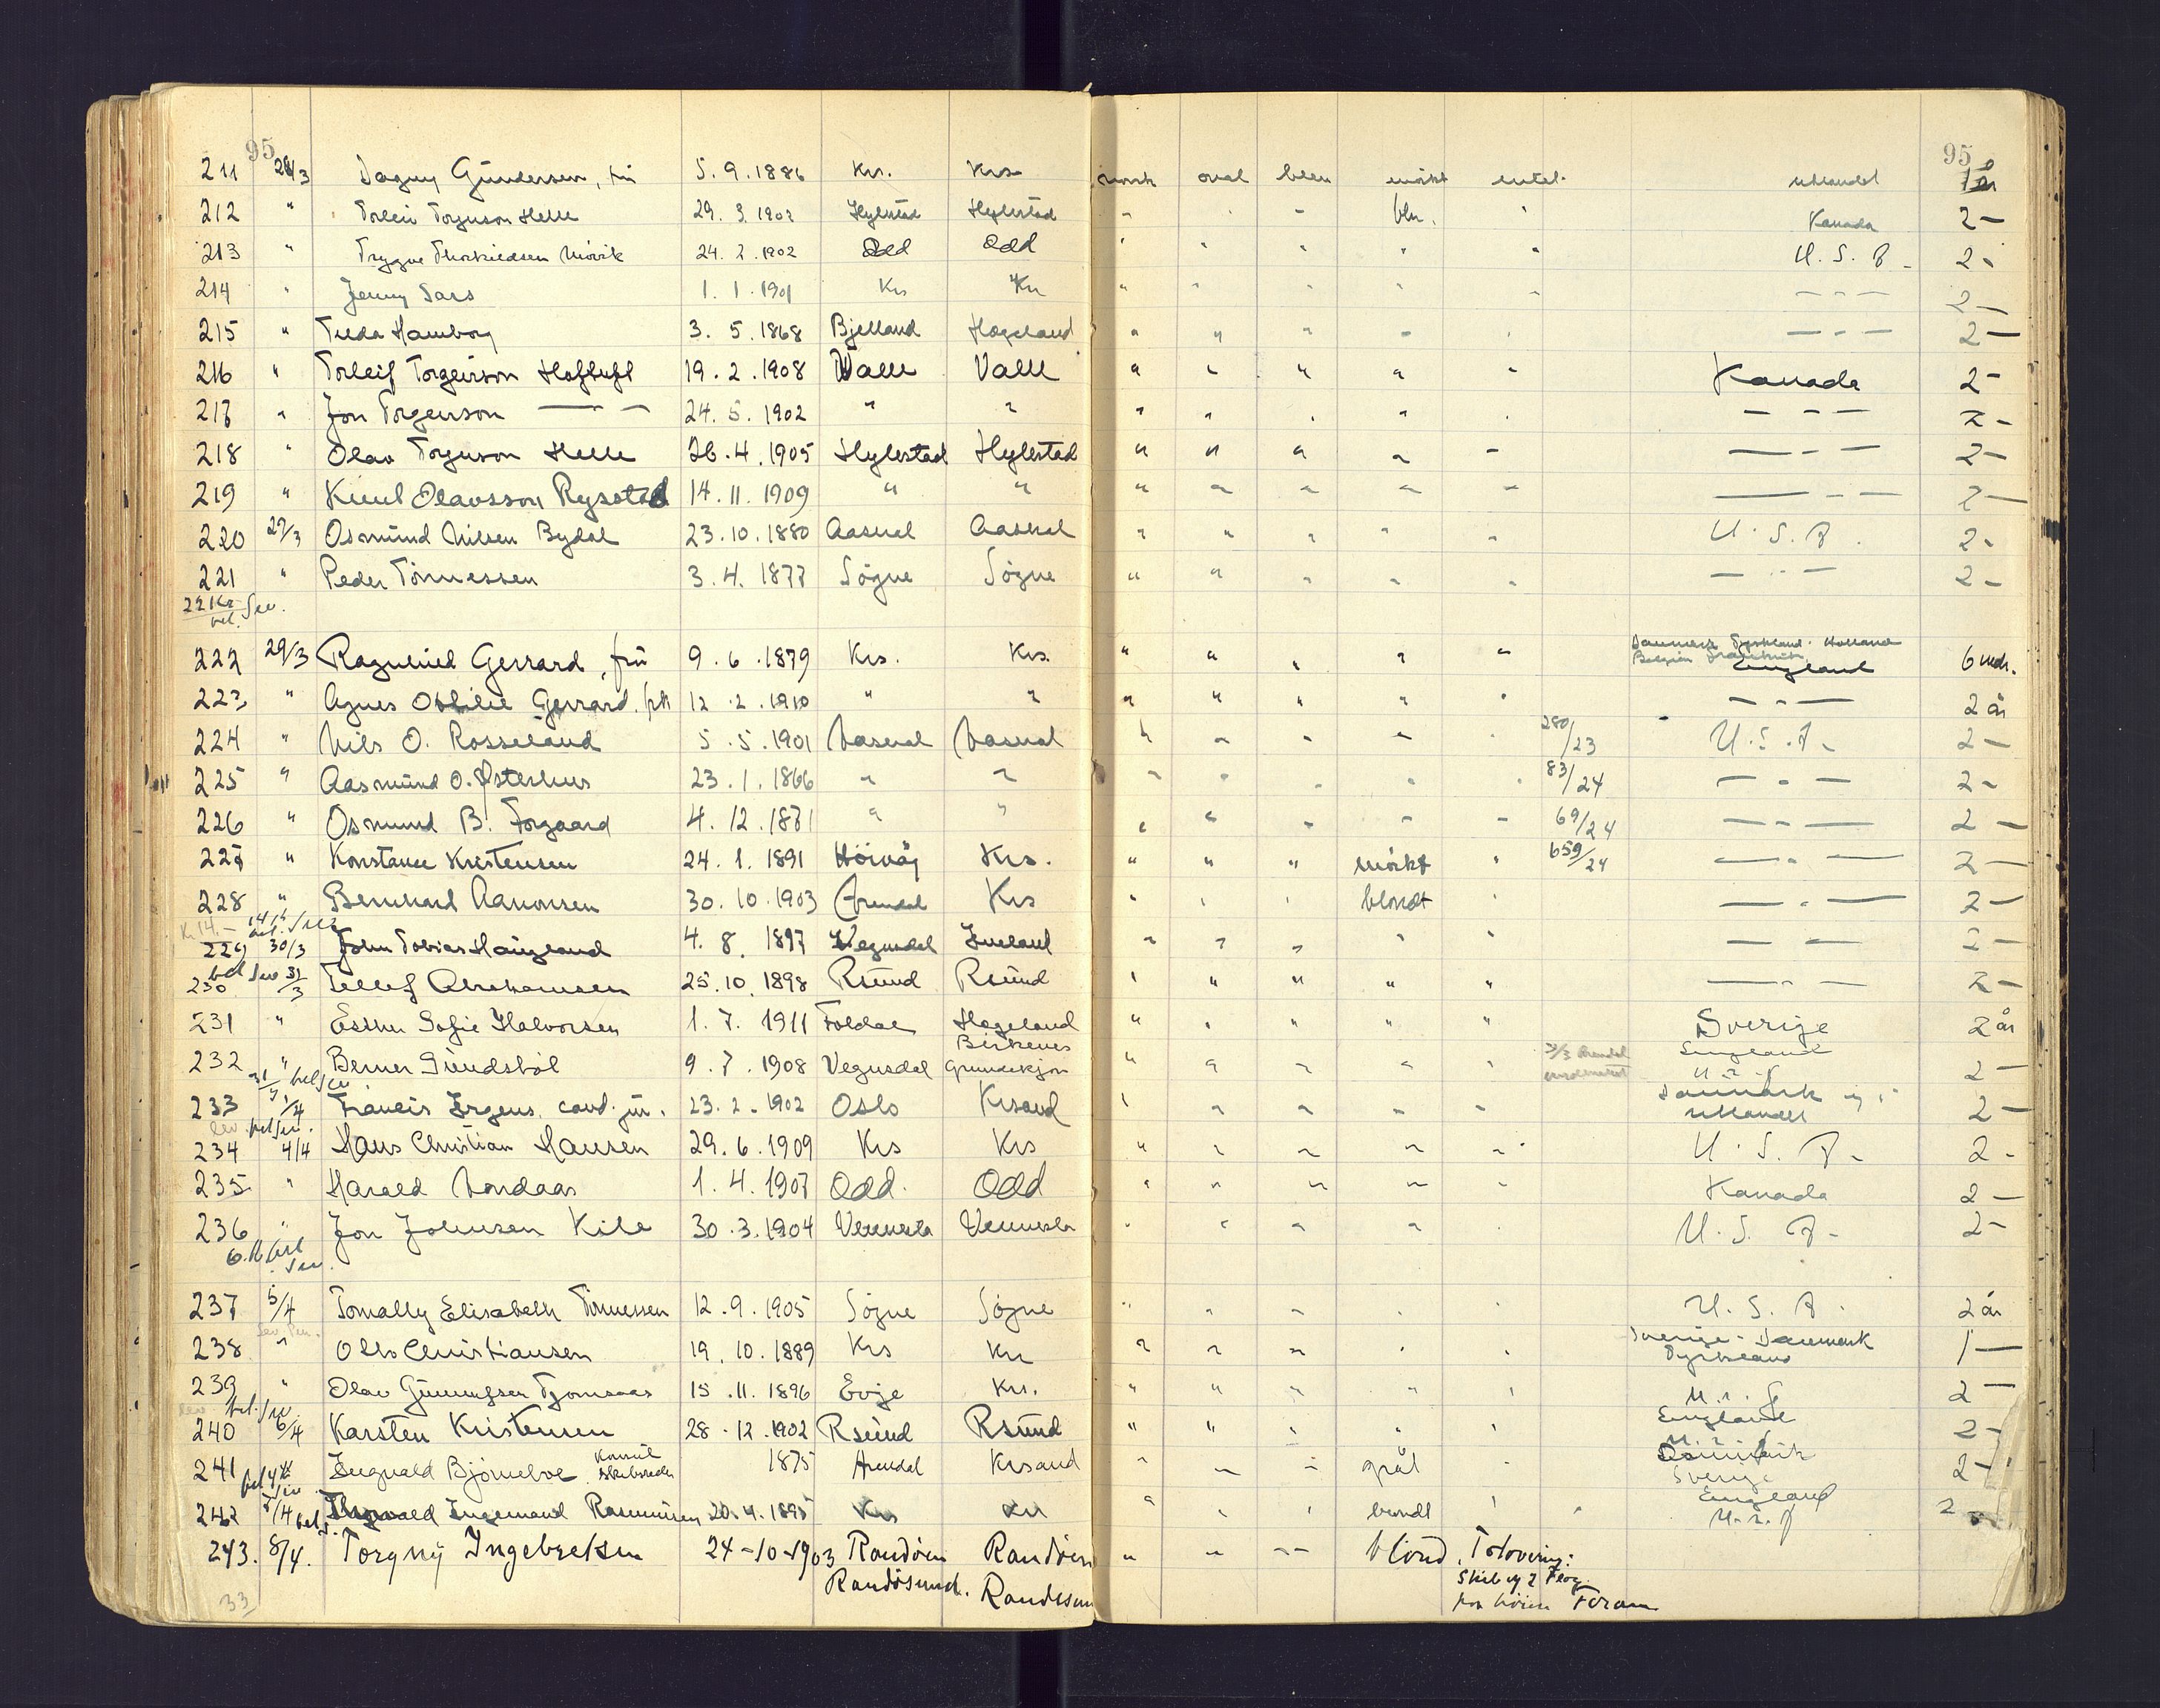 95 95
211 28/3 Dagny Gundersen, fru 5.9.1886 Krs. Krs. norsk oval been mørkt intet. utlandet 1 år
212 " Torleiv Torgusson Helle 29.3.1902 Hylestad Hylestad " " " bln. " Kanada 2 -
213 " Trygve Thorkildsen Mørk 24.2.1902 Odd Odd " " " " " U.S.A. 2 -
214 " Jenny Sars 1.1.1901 Krs Krs " " " " " - - - 2 -
215 " Hamborg 3.5.1868 Bjelland Hægeland " " " " " - - - 2 -
216 " Torleif Torgeirson Hoftuft 19.2.1908 Valle Valle " " " " " Kanada 2 -
217 " Jon Torgerson - - 24.5.1902 " " " " " " " - - - 2 -
218 " Olav Torguson Helle 26.4.1905 Hylestad Hylestad " " " " " - - - 2 -
219 " Knut Olavsson Rysstad 14.11.1909 " " " " " " " - - - 2 -
220 27/3 Osmund Nilsen Bydal 23.10.1880 Aaseral Aaseral " " " " " U.S.A. 2 -
221 " Peder Tönnessen 3.4.1877 Søgne Søgne " " " " " - - - 2 -
22 Kr. bel. Sev.
222 29/3 Ragnhild Gerrard, fru 9.6.1879 Krs. Krs. " " " " " Danmark Tyskland Holland Belgien Frankrike England 6 mdr.
223 " Agnes Othilie Gerrard, frk 12.2.1910 " " " " " " " - - - 2 år
224 " Nils O. Rosseland 5.5.1901 Aaseral Aaseral " " " " " 280/23 U.S.A. 2 -
225 " Aasmund O. Østerhus 23.1.1866 " " " " " " " 83/24 - - - 2 -
226 " Osmund B. Torgaard 4.12.1871 " " " " " " " 69/24 - - - 2 -
227 " Konstance Kristensen 24.1.1891 Høivåg Krs. " " " mörkt " 659/24 - - - 2 -
228 " Bernhard Aanonsen 30.10.1903 Arendal Krs " " " blondt " - - - 2 -
Kr. 14.- bel. Sev
229 30/3 John Tobias Haugland 4.8.1897 Vegusdal Iveland " " " " " - - 2 -
bel Sev
230 31/3 Tellef Abrahamsen 25.10.1898 Rsund Rsund " " " " " - - - 2 -
231 " Esther Sofie Halvorsen 1.7.1911 Foldal Hægeland " " " " " Sverige 2 år
232 " Berner Sundsböl 9.7.1908 Vegusdal Birkenes " " " " " England U.S.A. 2 -
bel Sev
233 1/4 Francis Irgens, cand. jur. 23.2.1902 Oslo Krsand " " " " " Danmark utlandet 2 -
bel Sev.
234 4/4 Hans Christian Hansen 29.6.1909 Krs Krs " " " " " U.S.A. 2 -
235 " Harald Vondaas 1.4.1907 Odd. Odd " " " " " Kanada 2 -
236 " Jon Johnsen Kile 30.3.1904 Vennesla Vennesla " " " " " U.S.A. 2 -
bel Sev.
237 5/4 Tomally Elisabeth Tönnessen 12.9.1905 Søgne Søgne " " " " " U.S.A. 2 år
238 " Otto Christiansen 19.10.1889 Krs Krs " " " " " Sverige - Danmark Tyskland 1 -
239 " Olav Gunnufsen 15.11.1896 Evje Krs. " " " " " 2 -
bel. Sev
240 6/4 Karsten Kristensen 28.12.1902 Rsund Rsund " " " " " England 2 -
241 Ingvald Björnebo Konsul Skibsreder 1875 Arendal Krsand " " " grål " Danmark Sverige 2 -
242 7/4 Ingemand Rasmussen 20.4.1895 Krs Krs " " " blondt " England 2 -
243. 8/4. Torgny Ingebretsen 24-10-1903 Randøen Randøen " " " blond, Totovering:
Randøsund. Randøsun Skib og 2 Flag.
paa høire Foram
33